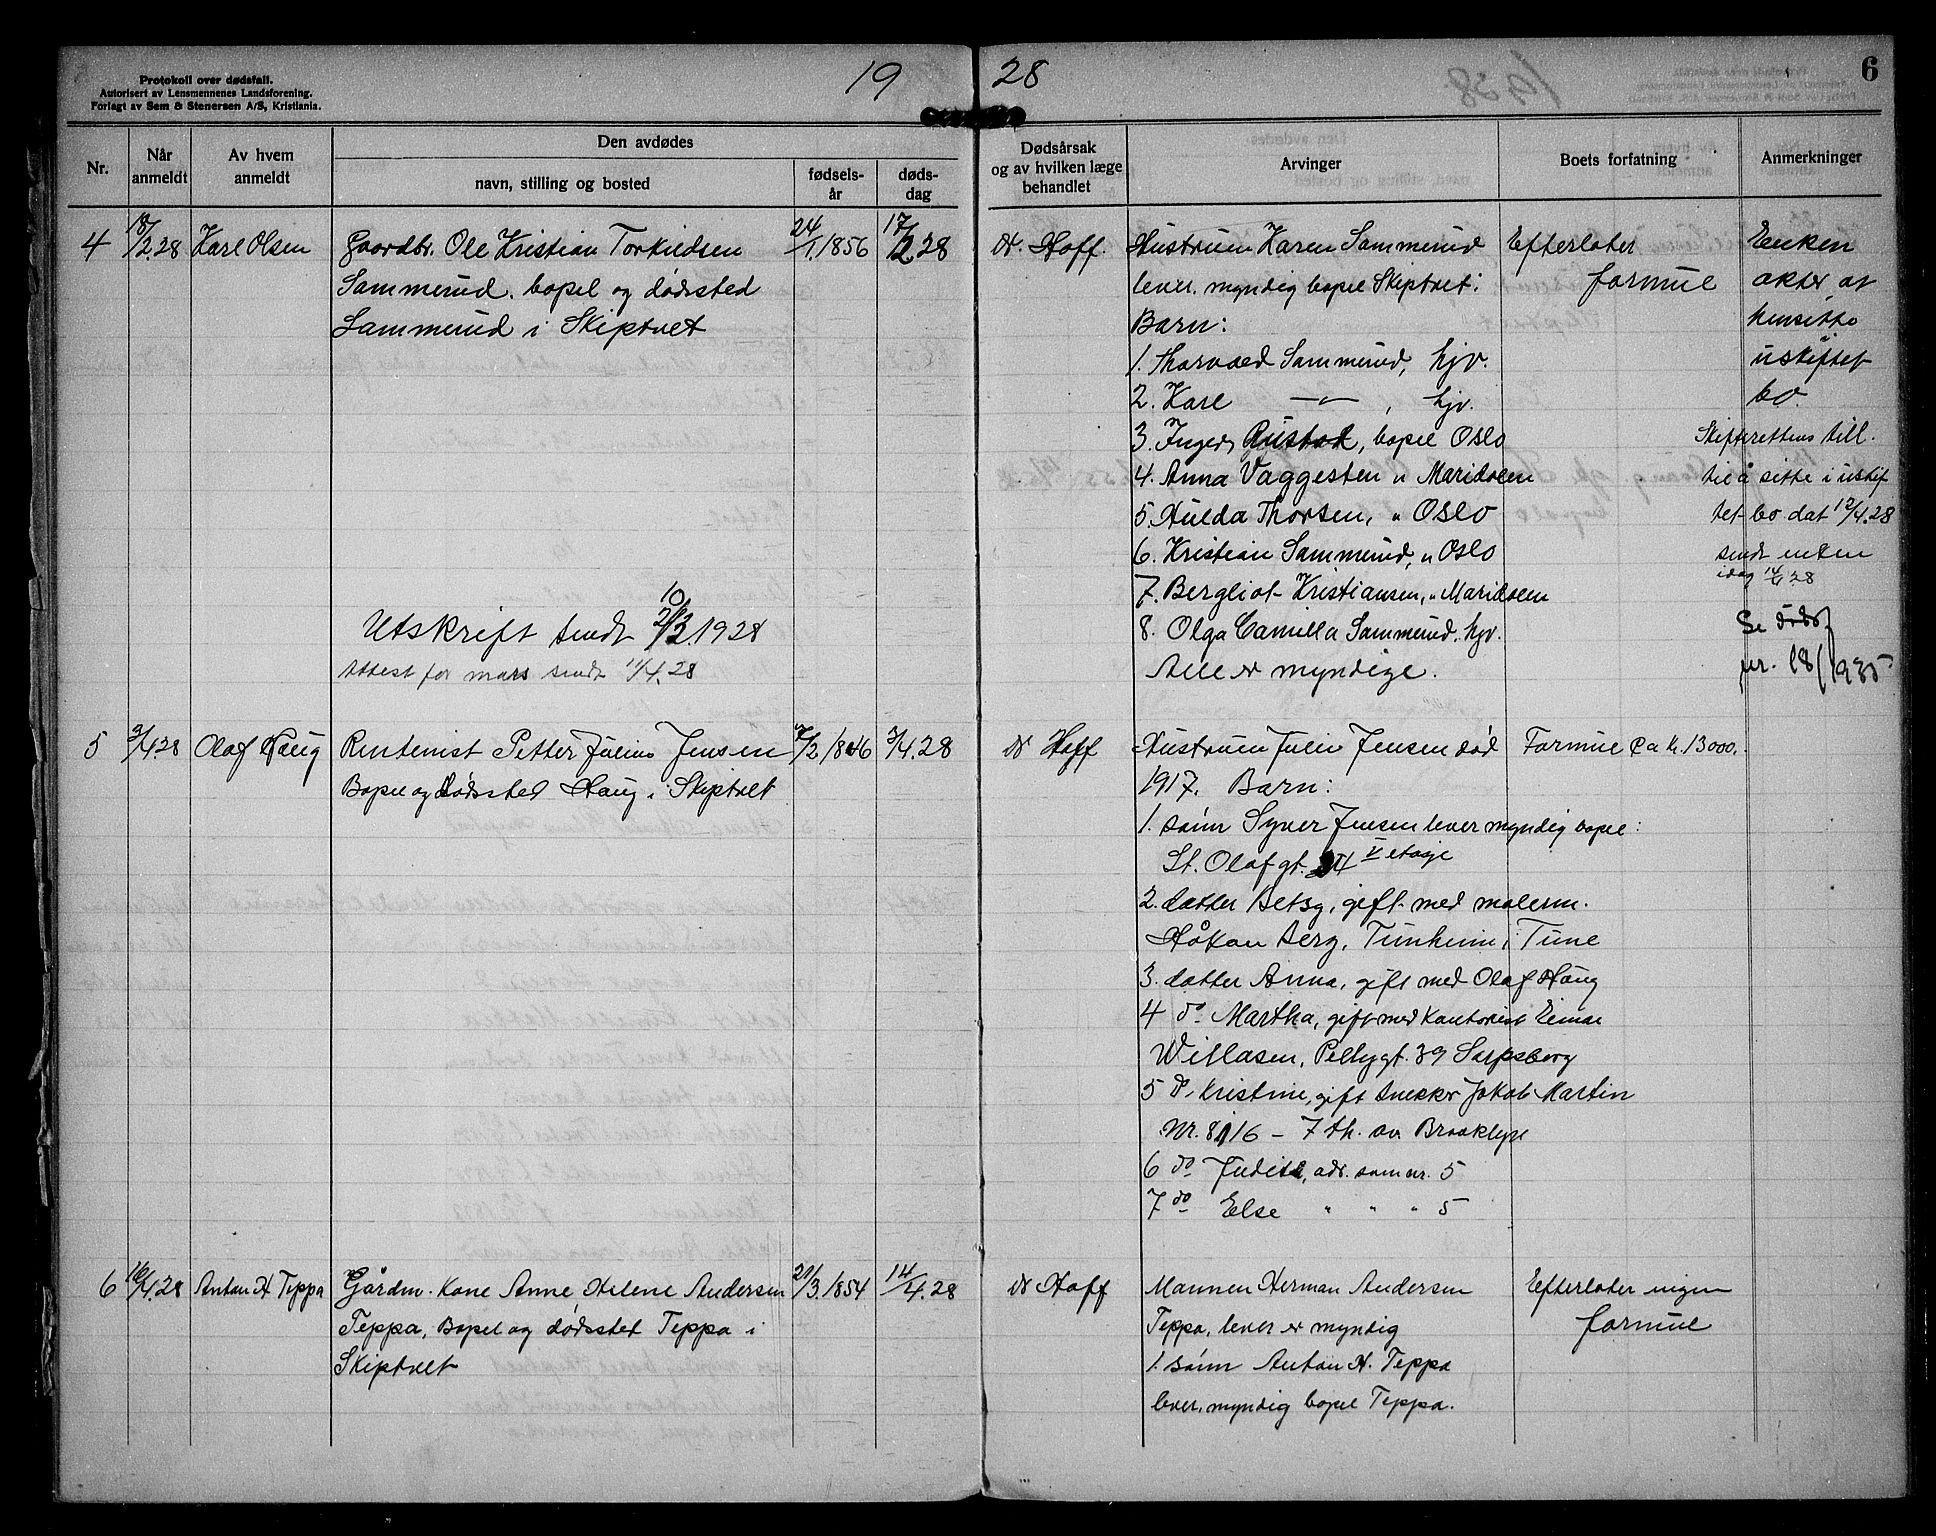 Protokoll over dødsfall.
Autorisert av Lensmennenes Landsforening.
Forlagt av Sem & Stenersen A/S, Kristiania.
19 28
6
Nr.
Når anmeldt
Av hvem anmeldt
Den avdødes
navn, stilling og bosted
fødselsår
dødsdag
Dødsårsak og av hvilken læge behandlet
Arvinger
Boets forfatning
Anmerkninger
4 18/2.28 Karl Olsen
Gaardbr. Ole Kristian Torkildsen
Sammerud. bopel og dødssted
Sammerud i Skiptvet
24/1.1856
17/2.28
dr. Hoff.
Hustruen Karen Sammerud
lever. myndig bopel Skiptvet:
Barn:
1. Thorvald Sammerud, hjv.
2. Karl —"— , hjv.
3. Inger, bopel Oslo
4. Anna Vaggesten " Maridalen
5. Hulda Thorsen, " Oslo
6. Kristian Sammerud, " Oslo
7. Bergliot Kristiansen, " Maridalen
8. Olga Camilla Sammerud, hjv.
Alle er myndige.
Efterlater
formue
Enken
akter at
hensitte
uskiftet
bo.
Skifterettens till.
til å sitte i uskif
tet bo dat 12/4.28
sendt enken
idag 14/4 28
Se dødsf
nr. 18/1935
Utskrift sendt 2/3.1928
Attest for mars sendt 11/4.28
5 3/4.28 Olaf Haug
Rentenist Petter Julius Jensen
Bopel og dødssted Haug i Skiptvet
7/2/1846
3/4.28
dr Hoff
Hustruen Julie Jensen død
1917. Barn:
1. sønn Syver Jensen lever myndig bopel:
St. Olafgt. V etasje
2. datter Betsy, gift med malerm.
Håkon Berg, Tunheim i Tune
3. datter Anna, gift med Olaf Haug
4 do Martha, gift med Kontorist Einar
Willasen, Pellygt. 39 Sarpsborg
5 do Kristine, gift snekker Jakob Martin
Nr. 8116 – 7 th. av Brooklyn
6 do Judith, adr. som nr. 5
7 do Else " " " 5
Formue ca kr. 13000.
6 16/4.28 Anton H Teppa
Gårdm. Kone Anne Helene Andersen
Teppa, Bopel og dødsstet Teppa i
Skiptvet
21/3.1854
14/4.28
dr Hoff
Mannen Herman Andersen
Teppa, lever er myndig
1. sønn Anton H. Teppa
lever, myndig bopel Teppa.
Efterlater ingen
formue